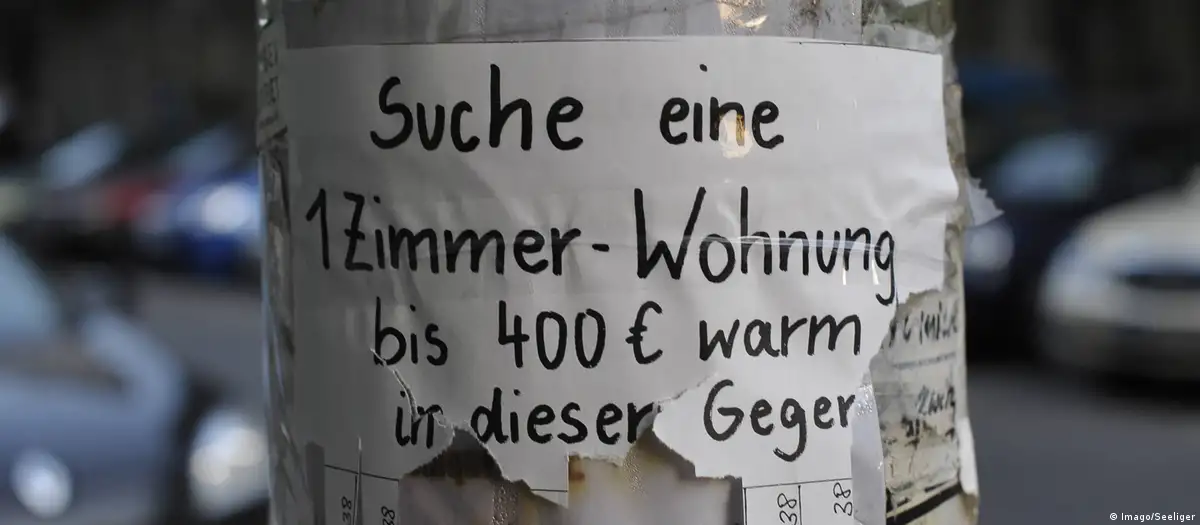 Suche eine
1 Zimmer-Wohnung
bis 400 € warm
in dieser Geger
38
38
38
38
© Imago/Seeliger